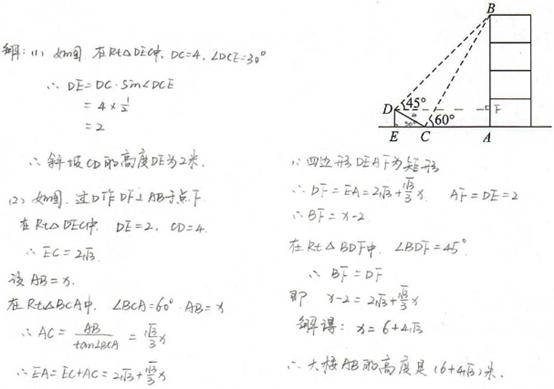 解:(1) 如图,在Rt△DEC中,DC=4,∠DCE=30°
∴ DE=DC·Sin∠DCE
=4×1/2
=2
∴ 斜坡CD的高度DE为2米.
(2) 如图,过D作DF⊥AB于点F.
在Rt△DEC中 DE=2, CD=4.
∴ EC=2√3.
设AB=x.
在Rt△BCA中, ∠BCA=60° AB=x
∴ AC=AB/tan∠BCA=√3/3x
∴ EA=EC+AC=2√3+√3/3x
B
D
45°
F
30°
60°
E
C
A
∵ 四边形DEAF为矩形
∴ DF=EA=2√3+√3/3x. AF=DE=2
∴ BF=x-2
在Rt△BDF中, ∠BDF=45°.
∴ BF=DF
即 x-2=2√3+√3/3x
解得: x=6+4√3
∴ 大楼AB的高度是(6+4√3)米.